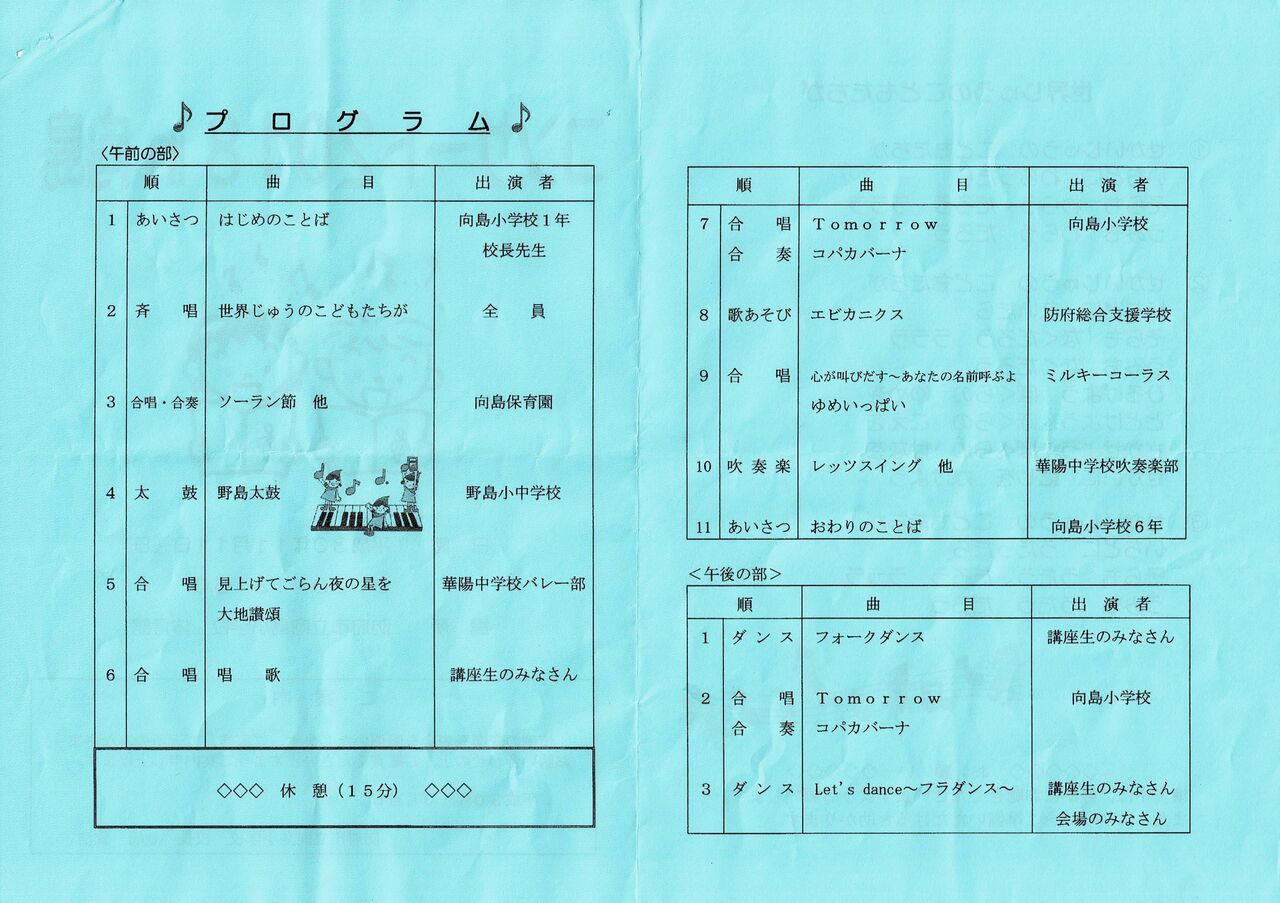 ♪プログラム♪
〈午前の部〉
順 曲目 出演者
1 あいさつ はじめのことば 向島小学校1年
校長先生
2 斉唱 世界じゅうのこどもたちが 全員
3 合唱・合奏 ソーラン節 他 向島保育園
4 太鼓 野島太鼓 野島小中学校
5 合唱 見上げてごらん夜の星を 華陽中学校バレー部
大地讃頌
6 合唱 唱歌 講座生のみなさん
◇◇◇ 休憩(15分) ◇◇◇
順 曲目 出演者
7 合唱 Tomorrow 向島小学校
合奏 コパカバーナ
8 歌あそび エビカニクス 防府総合支援学校
9 合唱 心が叫びだす~あなたの名前呼ぶよ ミルキーコーラス
ゆめいっぱい
10 吹奏楽 レッツスイング 他 華陽中学校吹奏楽部
11 あいさつ おわりのことば 向島小学校6年
<午後の部>
順 曲目 出演者
1 ダンス フォークダンス 講座生のみなさん
2 合唱 Tomorrow 向島小学校
合奏 コパカバーナ
3 ダンス Let's dance~フラダンス~ 講座生のみなさん
会場のみなさん